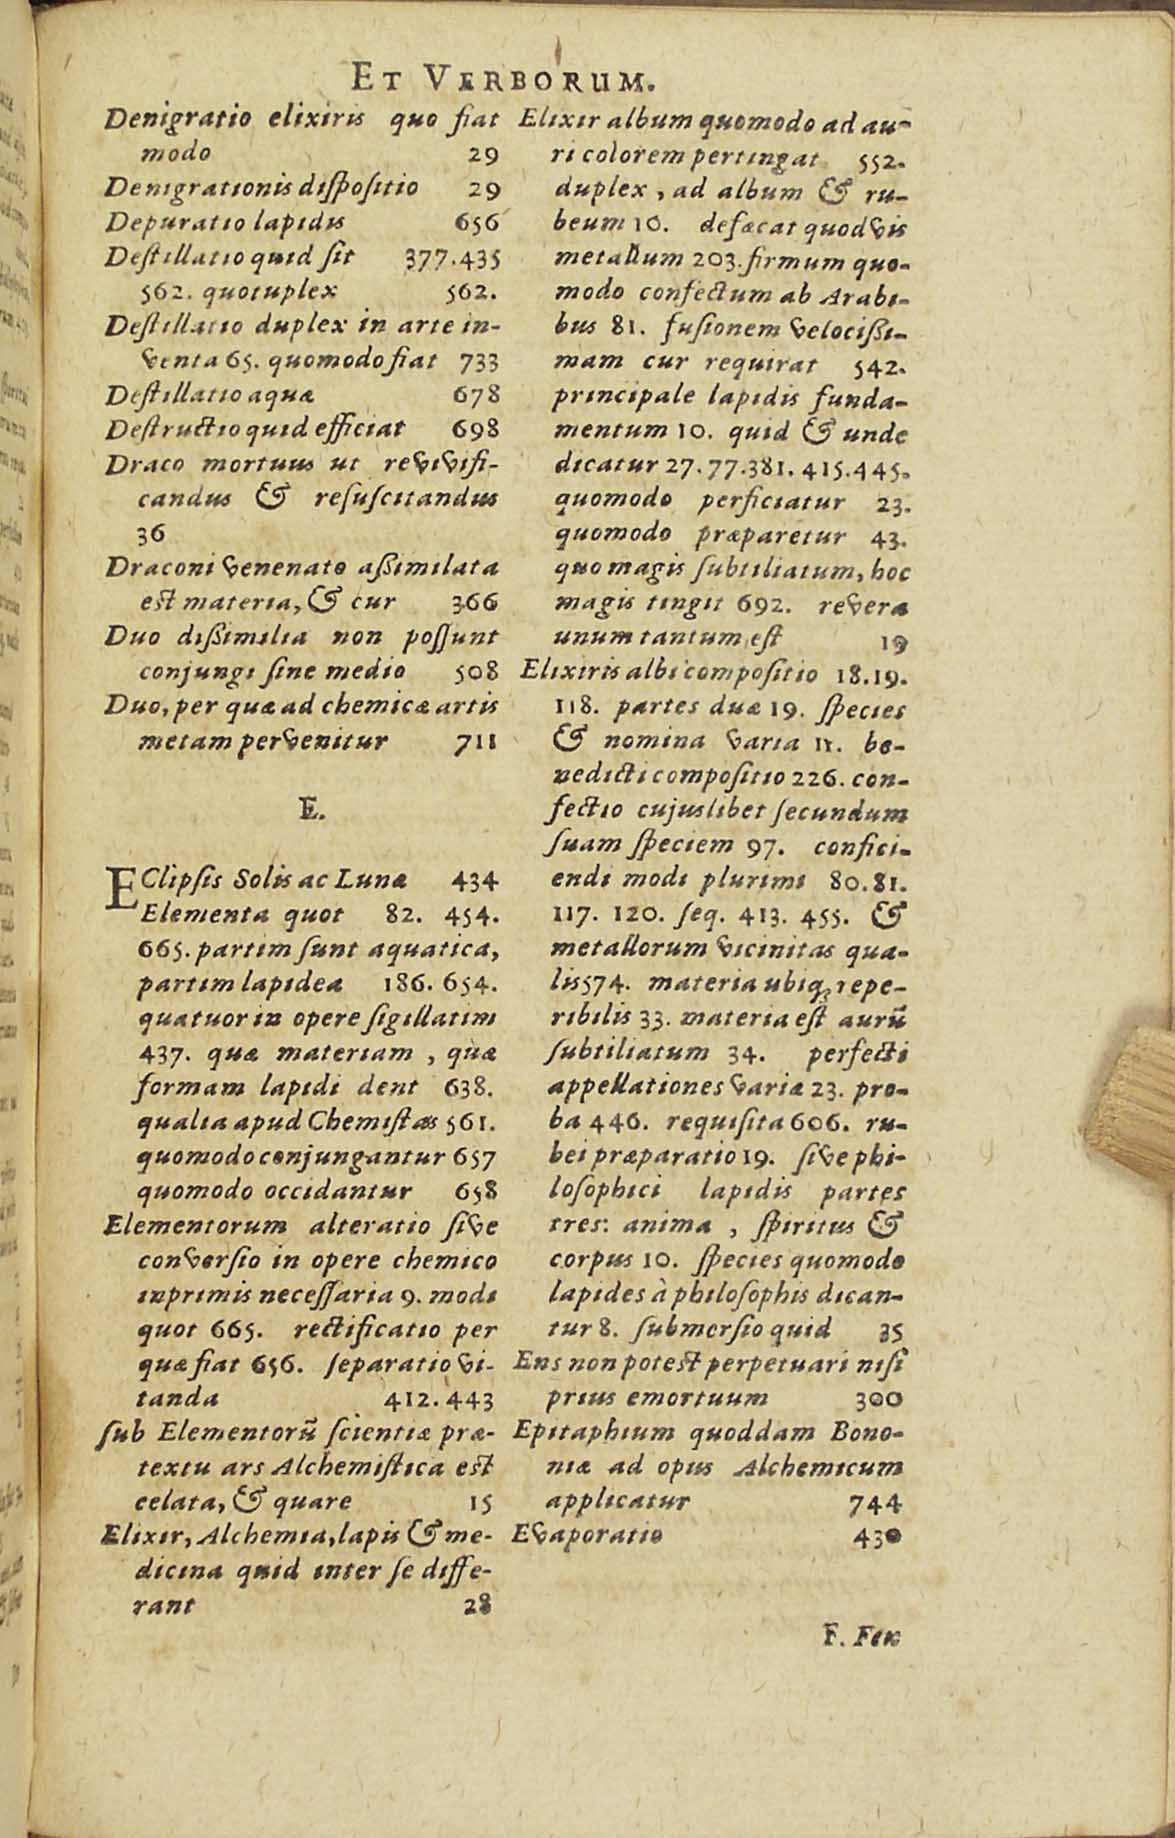 ET VERBORUM.
Denigratio elixiris quo fiat
modo 29
Denigrationis diſpoſitio 29
Depuratio lapidis 656
Deſtillatio quid ſit 377.435
562. quotuplex 562.
Deſtillatio duplex in arte in-
venta 65. quomodo fiat 733
Deſtillatio aquæ 678
Deſtructio quid efficiat 698
Draco mortuus ut revivifi-
candus & reſuſcitandus
36
Draconi venenato aßimilata
est materia, & cur 366
Duo dißimilia non poſſunt
conjungi ſine medio 508
Duo, per quæ ad chemicæ artis
metam pervenitur 711
E.
EClipſis Solis ac Lunæ 434
Elementa quot 82. 454.
665. partim ſunt aquatica,
partim lapidea 186. 654.
quatuor in opere ſigillatim
437. quæ materiam, quæ
formam lapidi dent 638.
qualia apud Chemiſtas 561.
quomodo conjungantur 657
quomodo occidantur 658
Elementorum alteratio ſive
converſio in opere chemico
inprimis neceſſaria 9. modi
quot 665. rectificatio per
quæ fiat 656. ſeparatio vi-
tanda 412.443
ſub Elementorū ſcientiæ præ-
textu ars Alchemiſtica est
celata, & quare 15
Elixir, Alchemia, lapis & me-
dicina quid inter ſe diffe-
rant 28
Elixir album quomodo ad au-
ri colorem pertingat 552.
duplex, ad album & ru-
beum 10. defæcat quodvis
metallum 203. firmum quo-
modo confectum ab Arabi-
bus 81. fuſionem velocißi-
mam cur requirat 542.
principale lapidis funda-
mentum 10. quid & unde
dicatur 27.77.381.415.445.
quomodo perficiatur 23.
quomodo præparetur 43.
quo magis ſubtiliatum, hoc
magis tingit 692. revera
unum tantum eſt 19
Elixiris albi compoſitio 18.19.
118. partes duæ 19. ſpecies
& nomina varia 11. be-
nedicti compoſitio 226. con-
fectio cujuslibet ſecundum
ſuam ſpeciem 97. confici-
endi modi plurimi 80.81.
117. 120. ſeq. 413. 455. &
metallorum vicinitas qua-
lis 574. materia ubiq; repe-
ribilis 33. materia eſt aurū
ſubtiliatum 34. perfecti
appellationes variæ 23. pro-
ba 446. requiſita 606. ru-
bei præparatio 19. ſive phi-
loſophici lapidis partes
tres: anima, ſpiritus &
corpus 10. ſpecies quomodo
lapides à philoſophis dican-
tur 8. ſubmerſio quid 35
Ens non potest perpetuari niſi
prius emortuum 300
Epitaphium quoddam Bono-
niæ ad opus Alchemicum
applicatur 744
Evaporatio 430
F. Fer